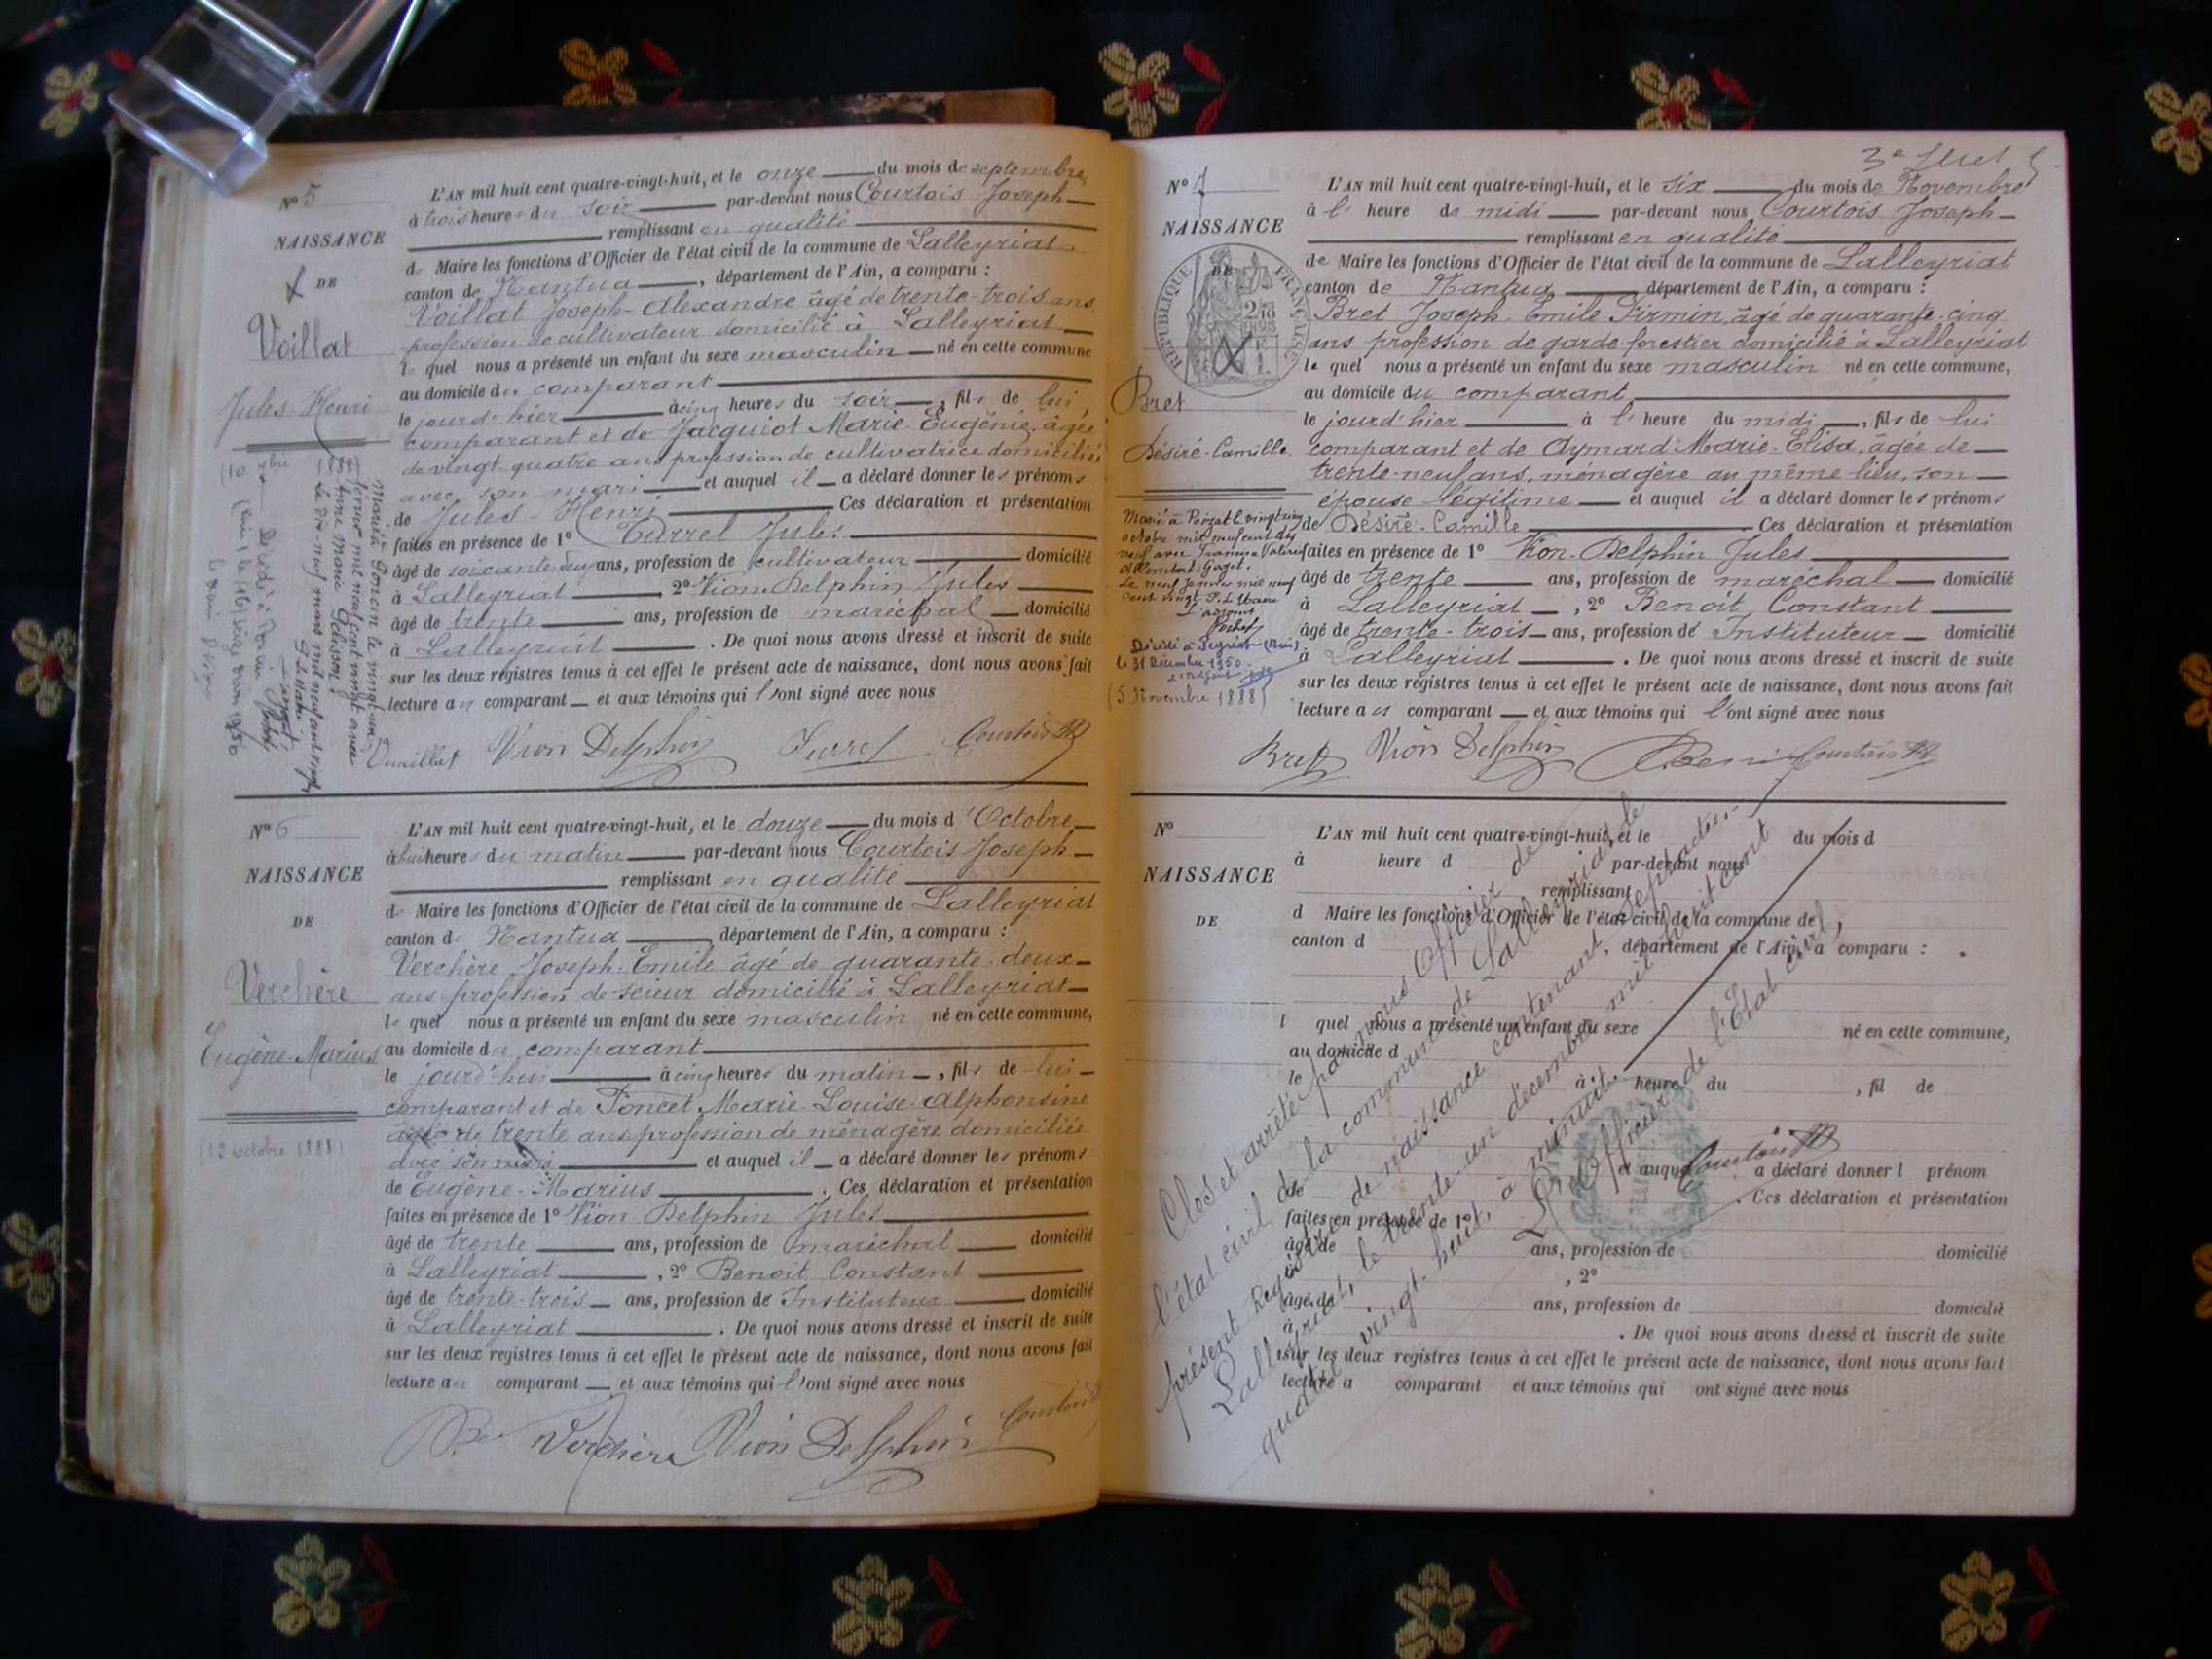 N° 5
NAISSANCE
DE
Voillat
Jules-Henri
L'AN mil huit cent quatre-vingt-huit, et le onze du mois de septembre
à trois heures du soir par-devant nous Courtois Joseph
remplissant en qualité
de Maire les fonctions d'Officier de l'état civil de la commune de Lalleyriat
canton de Nantua, département de l'Ain, a comparu :
Voillat Joseph-Alexandre âgé de trente-trois ans
profession de cultivateur domicilié à Lalleyriat
le quel nous a présenté un enfant du sexe masculin né en cette commune
au domicile du comparant
le jour d'hier à cinq heures du soir, fils de lui,
comparant et de Jacquiot Marie-Eugénie, âgée
de vingt-quatre ans profession de cultivatrice domiciliée
avec son mari et auquel il a déclaré donner les prénoms
de Jules-Henri Ces déclaration et présentation
faites en présence de 1° Jules
âgé de soixante ans, profession de cultivateur domicilié
à Lalleyriat, 2° Vion-Delphin Jules
âgé de trente ans, profession de maréchal domicilié
à Lalleyriat. De quoi nous avons dressé et inscrit de suite
sur les deux registres tenus à cet effet le présent acte de naissance, dont nous avons fait
lecture au comparant et aux témoins qui l'ont signé avec nous
Vion Delphin Courtois
N° 6
NAISSANCE
DE
Verchère
Eugène-Marius
(12 octobre 1888)
L'AN mil huit cent quatre-vingt-huit, et le douze du mois d'Octobre
à huit heures du matin par-devant nous Courtois Joseph
remplissant en qualité
de Maire les fonctions d'Officier de l'état civil de la commune de Lalleyriat
canton de Nantua, département de l'Ain, a comparu :
Verchère Joseph-Emile âgé de quarante-deux
ans profession de scieur domicilié à Lalleyriat
le quel nous a présenté un enfant du sexe masculin né en cette commune,
au domicile du comparant
le jourd'hui à cinq heures du matin, fils de lui
comparant et de Poncet Marie-Louise-Alphonsine
âgée de trente ans profession de ménagère domiciliée
avec son mari et auquel il a déclaré donner les prénoms
de Eugène-Marius. Ces déclaration et présentation
faites en présence de 1° Vion-Delphin Jules
âgé de trente ans, profession de maréchal domicilié
à Lalleyriat, 2° Benoit Constant
âgé de trente-trois ans, profession de Instituteur domicilié
à Lalleyriat. De quoi nous avons dressé et inscrit de suite
sur les deux registres tenus à cet effet le présent acte de naissance, dont nous avons fait
lecture au comparant et aux témoins qui l'ont signé avec nous
Verchère Vion Delphin Courtois
N° 7
NAISSANCE
DE
RÉPUBLIQUE FRANÇAISE
Bret
Désiré-Camille
Marié à Poizat le vingt cinq
octobre mil neuf cent dix
neuf avec
Le neuf Janvier mil neuf
cent vingt
Décédé à Peyriat (Ain)
le 31 Décembre 1950
(5 Novembre 1888)
L'AN mil huit cent quatre-vingt-huit, et le six du mois de Novembre
à l' heure de midi par-devant nous Courtois Joseph
remplissant en qualité
de Maire les fonctions d'Officier de l'état civil de la commune de Lalleyriat
canton de Nantua département de l'Ain, a comparu :
Bret Joseph-Emile Firmin âgé de quarante-cinq
ans profession de garde forestier domicilié à Lalleyriat
le quel nous a présenté un enfant du sexe masculin né en cette commune,
au domicile du comparant,
le jourd'hier à l' heure du midi, fils de lui
comparant et de Aymard Marie-Elisa, âgée de
trente-neuf ans, ménagère au même lieu, son
épouse légitime et auquel il a déclaré donner les prénoms
de Désiré-Camille Ces déclaration et présentation
faites en présence de 1° Vion-Delphin Jules
âgé de trente ans, profession de maréchal domicilié
à Lalleyriat, 2° Benoit Constant
âgé de trente-trois ans, profession de Instituteur domicilié
à Lalleyriat. De quoi nous avons dressé et inscrit de suite
sur les deux registres tenus à cet effet le présent acte de naissance, dont nous avons fait
lecture au comparant et aux témoins qui l'ont signé avec nous
Bret Vion Delphin Courtois
N°
NAISSANCE
DE
L'AN mil huit cent quatre-vingt-huit, et le du mois d
à heure d par-devant nous
remplissant
d Maire les fonctions d'Officier de l'état civil de la commune de
canton d, département de l'Ain, a comparu :
l quel nous a présenté un enfant du sexe né en cette commune,
au domicile d
le à heure du, fil de
et auquel a déclaré donner l prénom
de. Ces déclaration et présentation
faites en présence de 1°
âgé de ans, profession de domicilié
à, 2°
âgé de ans, profession de domicilié
à. De quoi nous avons dressé et inscrit de suite
sur les deux registres tenus à cet effet le présent acte de naissance, dont nous avons fait
lecture a comparant et aux témoins qui ont signé avec nous
Clos et arrêté par nous Officier de
l'état civil de la commune de Lalleyriat le
présent Registre de naissance contenant sept actes.
Lalleyriat, le trente-un décembre mil huit cent
quatre vingt-huit, à minuit.
L'Officier de l'Etat civil,
Courtois